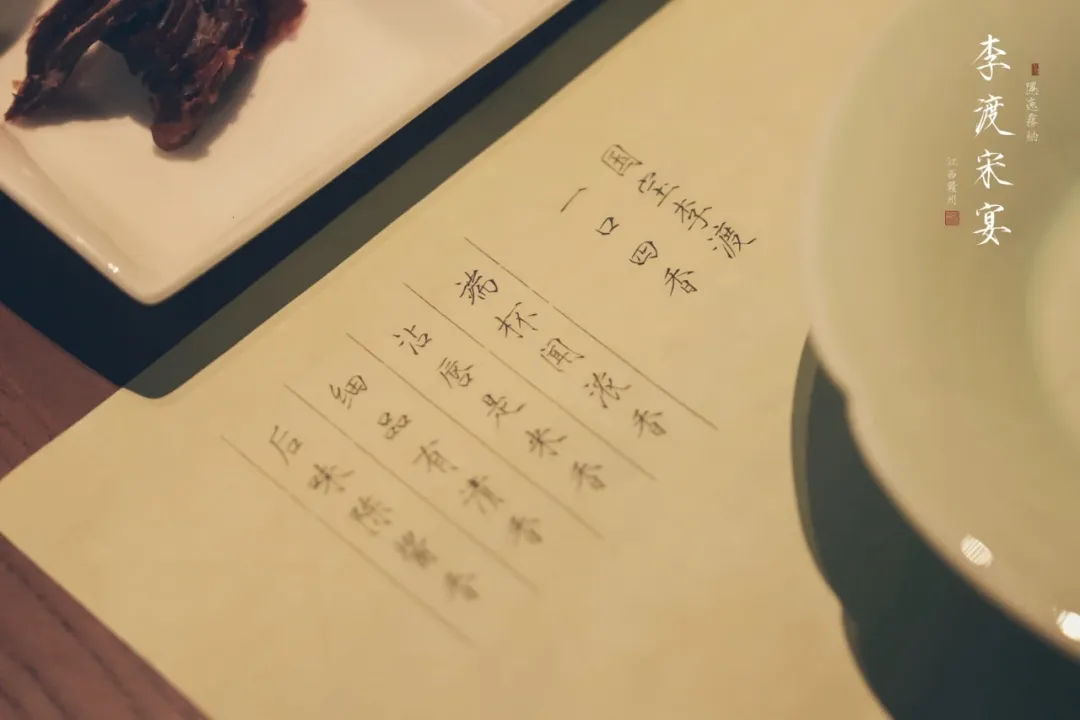 国宝李渡
一口四香
端杯闻浓香
沾唇是米香
细品有清香
后味陈酱香
李渡宋宴